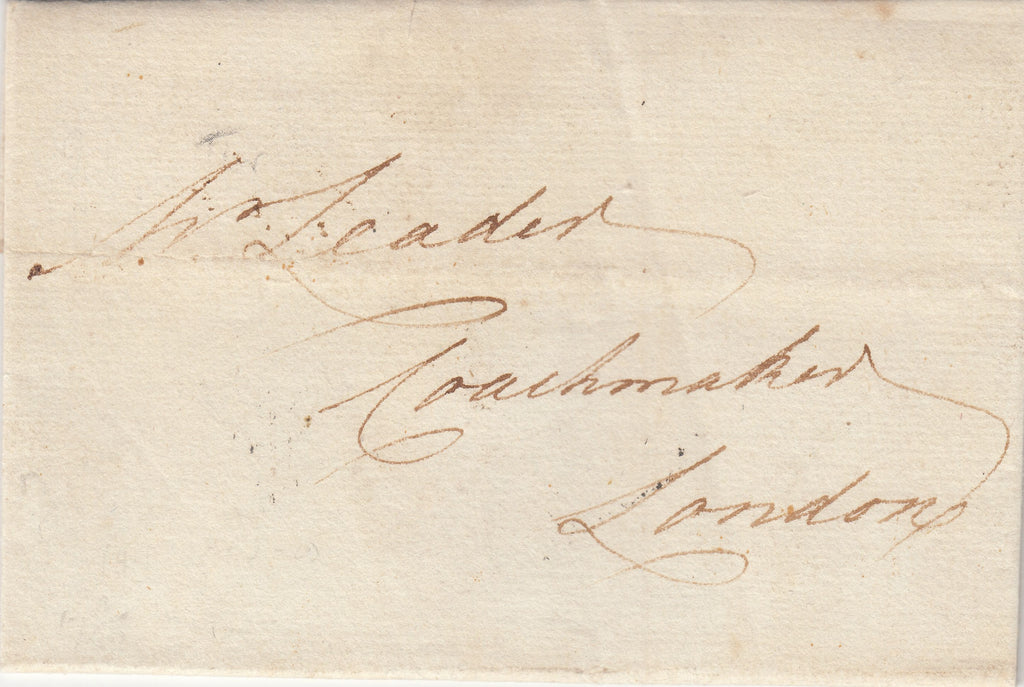 Mr Leader
Coachmaker
London